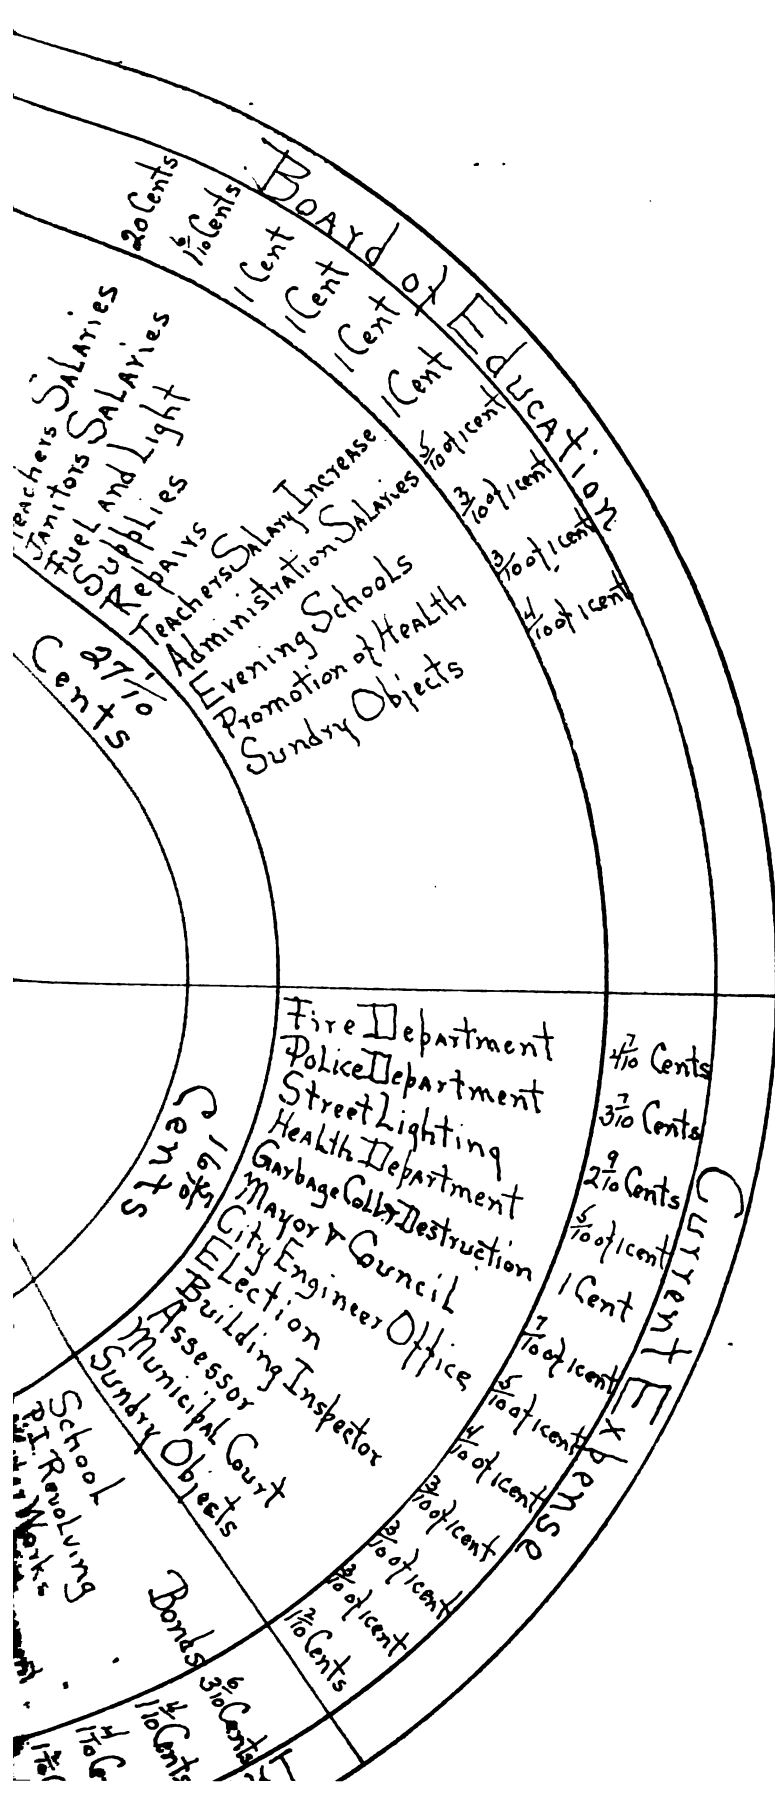 Board of Education
20 Cents
1 6/10 Cents
1 Cent
1 Cent
1 Cent
1 Cent
5/10 of 1 cent
3/10 of 1 cent
3/10 of 1 cent
4/10 of 1 cent
Teachers Salaries
Janitors Salaries
Fuel and Light
Supplies
Repairs
Teachers Salary Increase
Administration Salaries
Evening Schools
Promotion of Health
Sundry Objects
27 1/10
Cents
Current Expense
Fire Department
Police Department
Street Lighting
Health Department
Garbage Coll & Destruction
Mayor & Council
City Engineer Office
Election
Building Inspector
Assessor
Municipal Court
Sundry Objects
4 7/10 Cents
3 7/10 Cents
2 9/10 Cents
5/10 of 1 cent
1 Cent
7/10 of 1 cent
5/10 of 1 cent
4/10 of 1 cent
3/10 of 1 cent
3/10 of 1 cent
3/10 of 1 cent
1 2/10 Cents
Cents
School Bonds
P.I. Revolving
Works
3 6/10 Cents
1 4/10 Cents